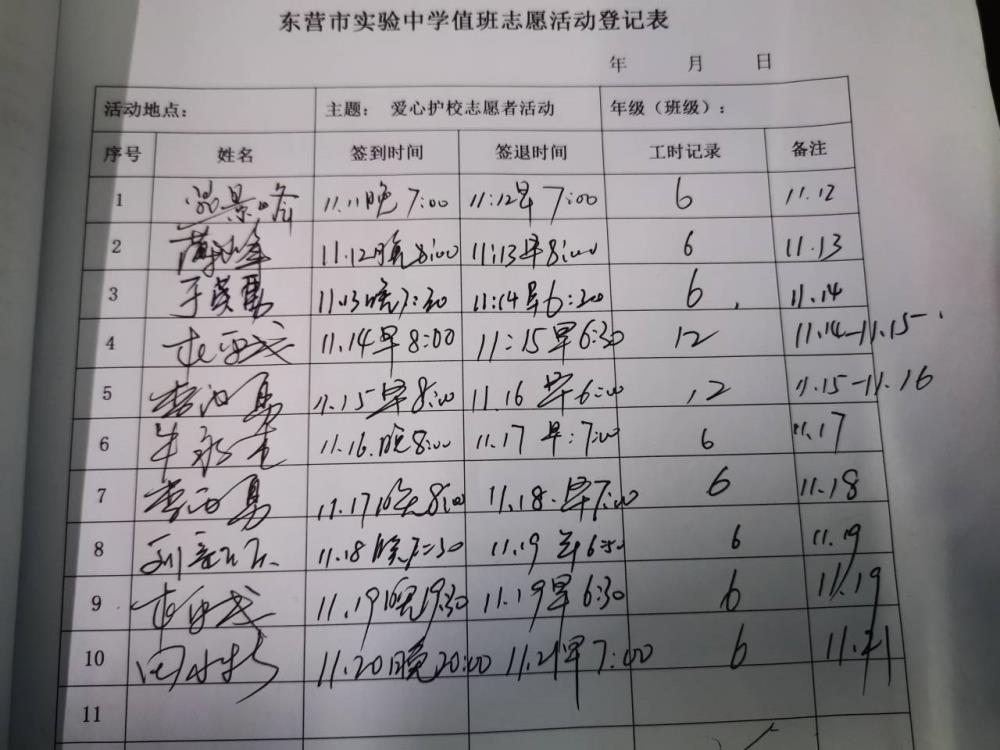 东营市实验中学值班志愿活动登记表
年 月 日
活动地点： 主题： 爱心护校志愿者活动 年级（班级）：
序号 姓名 签到时间 签退时间 工时记录 备注
1 11.11晚7:00 11:12早7:00 6 11.12
2 11.12晚8:00 11:13早8:00 6 11.13
3 11.13晚7:30 11:14早6:20 6 11.14
4 11.14早8:00 11:15早6:30 12 11.14-11.15
5 11.15早8:00 11.16早6:00 12 11.15-11.16
6 牛永 11.16.晚8:00 11.17早:7:00 6 11.17
7 11.17晚8:00 11.18.早7:00 6 11.18
8 11.18晚7:30 11.19早6:50 6 11.19
9 11.19晚19:30 11.19早6:30 6 11.19
10 田 11.20晚20:00 11.21早7:00 6 11.21
11